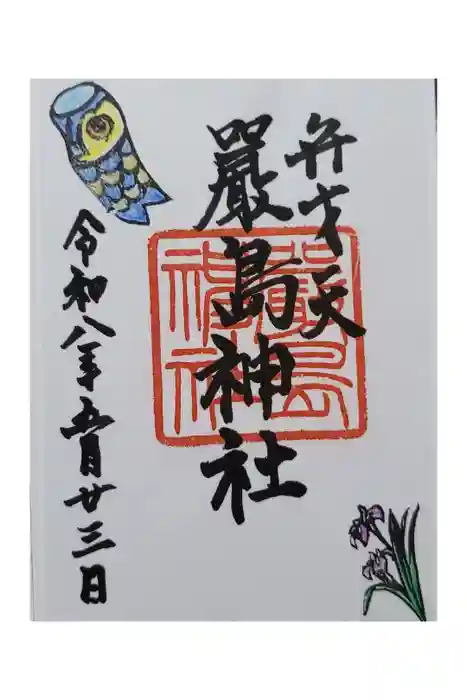 弁才天
嚴島神社
令和八年五月廿三日
嚴島
神社